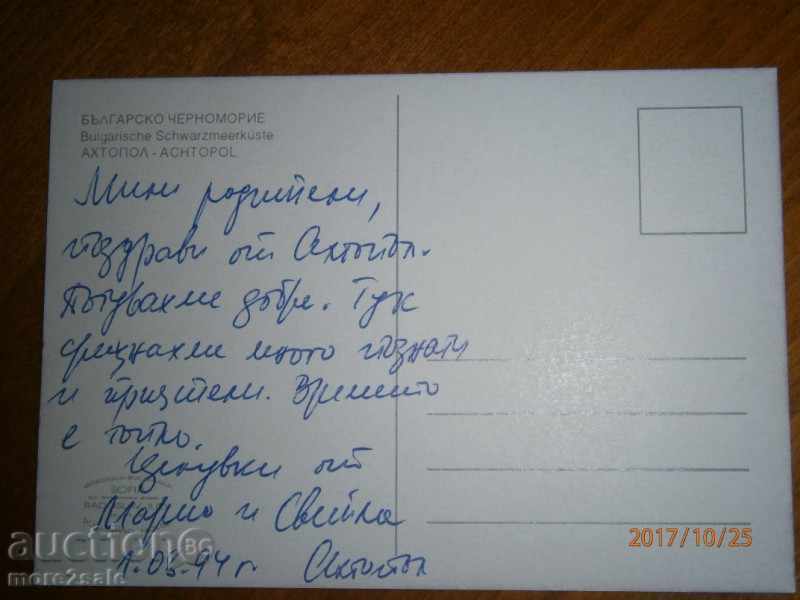 БЪЛГАРСКО ЧЕРНОМОРИЕ
Bulgarische Schwarzmeerküste
АХТОПОЛ - ACHTOPOL
Мили родители,
поздрави от Ахтопол.
Пътувахме добре. Тук
срещнахме много познати
и приятели. Времето
е топло.
Целувки от
Марио и Светла
94 г. Ахтопол
SOFIA
2017/10/25
auction BG
more2sale